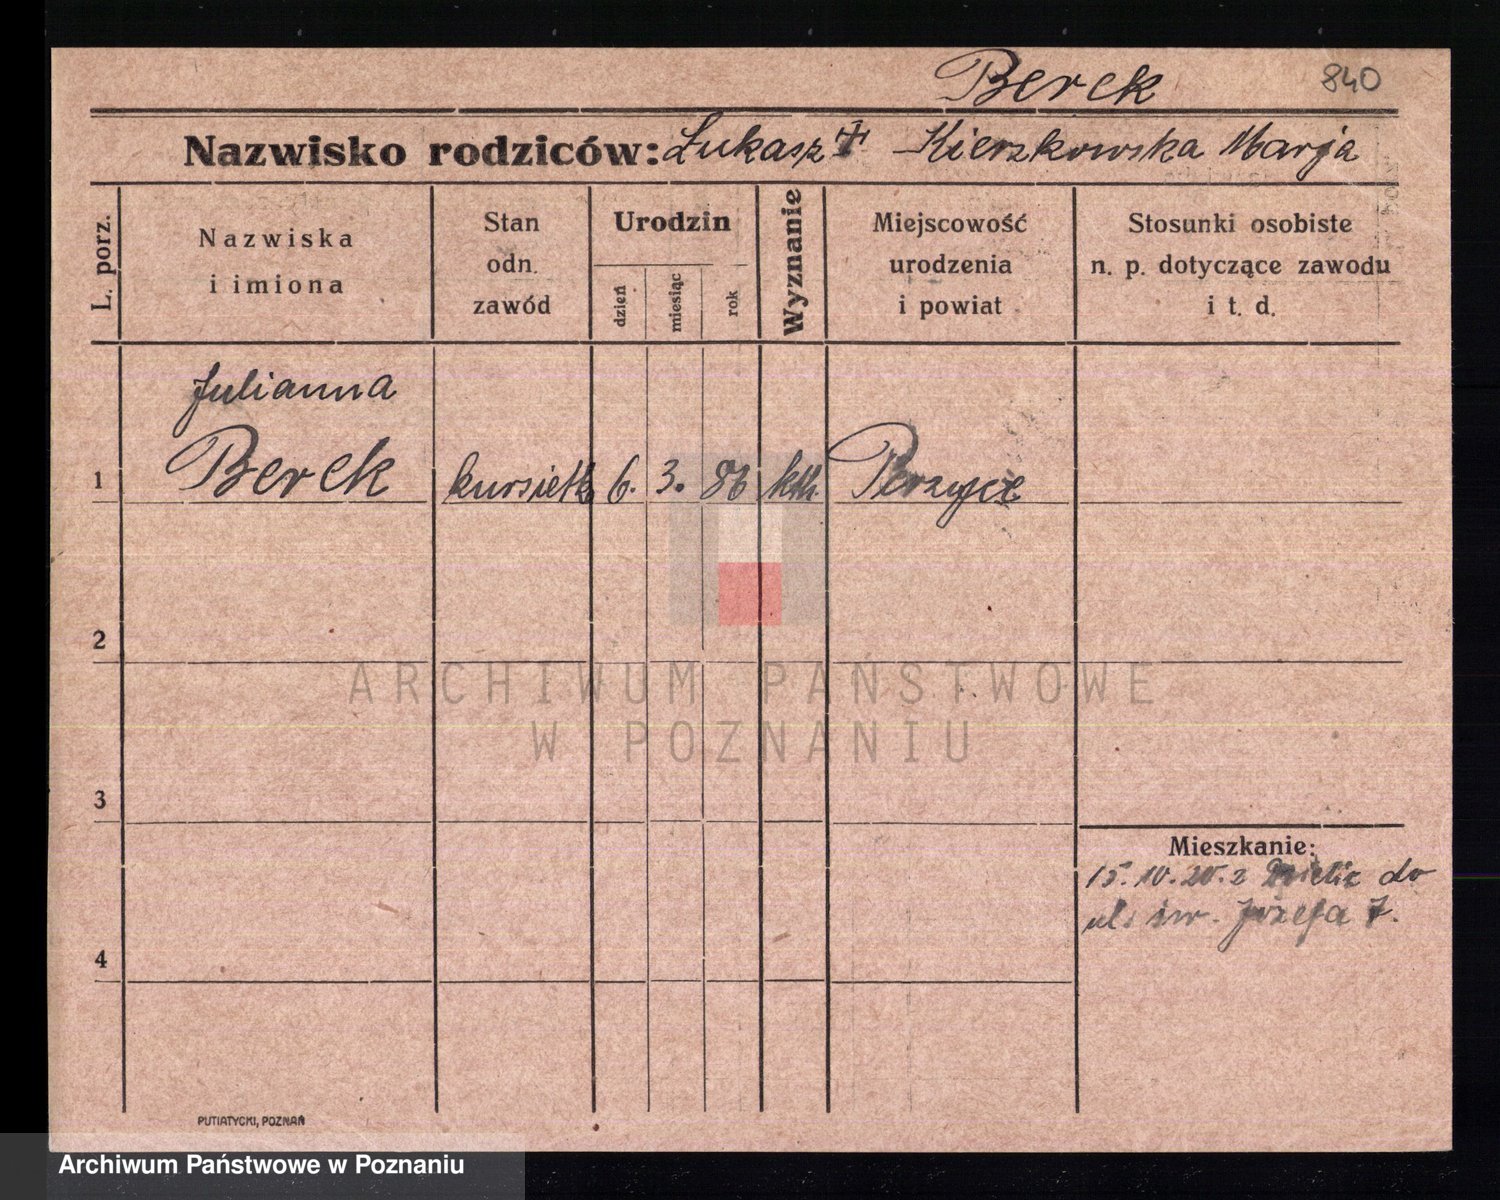 Berek 840
Nazwisko rodziców: Łukasz Kierzkowska Marja
L. porz.
Nazwiska
i imiona
Stan
odn.
zawód
Urodzin
dzień
miesiąc
rok
Wyznanie
Miejscowość
urodzenia
i powiat
Stosunki osobiste
n. p. dotyczące zawodu
i t. d.
Julianna
1 Berek 6. 3. 86 kth.
2
3
4
Mieszkanie:
15. 10. 20. z do
ul. św. Józefa 7.
ARCHIWUM PAŃSTWOWE
W POZNANIU
PUTIATYCKI, POZNAŃ
Archiwum Państwowe w Poznaniu